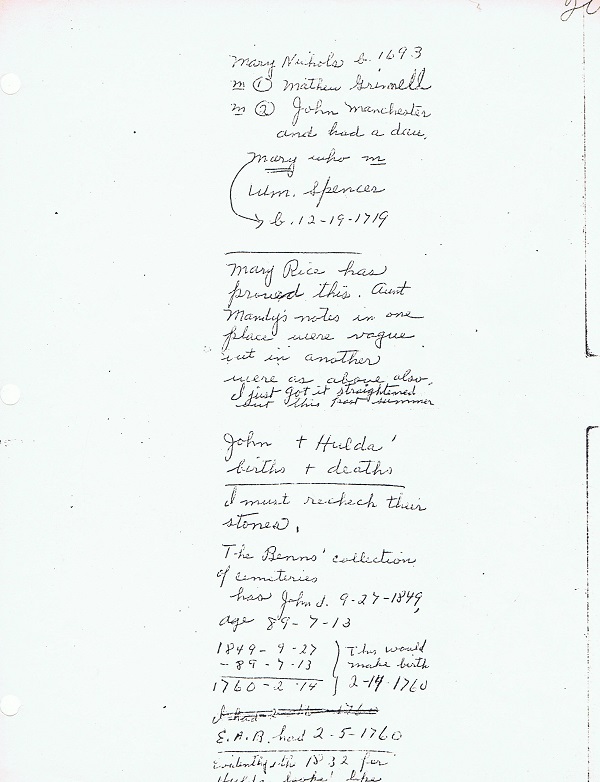 Mary Nichols b. 1693
m ① Mathew Grinnell
m ② John Manchester
and had a dau.
Mary who m
Wm. Spencer
b. 12-19-1719
Mary Rice has
proved this. Aunt
Mandy's notes in one
place were vague
but in another
were as above also.
I just got it straightened
out this past summer
John + Hulda'
births + deaths
I must recheck their
stones.
The Benns' collection
of cemeteries
has John d. 9-27-1849,
age 89-7-13
1849-9-27
-89-7-13
1760-2-14
This would
make birth
2-14-1760
I had 1760
E.A.B. had 2-5-1760
Evidently the 1832 for
Hulda looks like